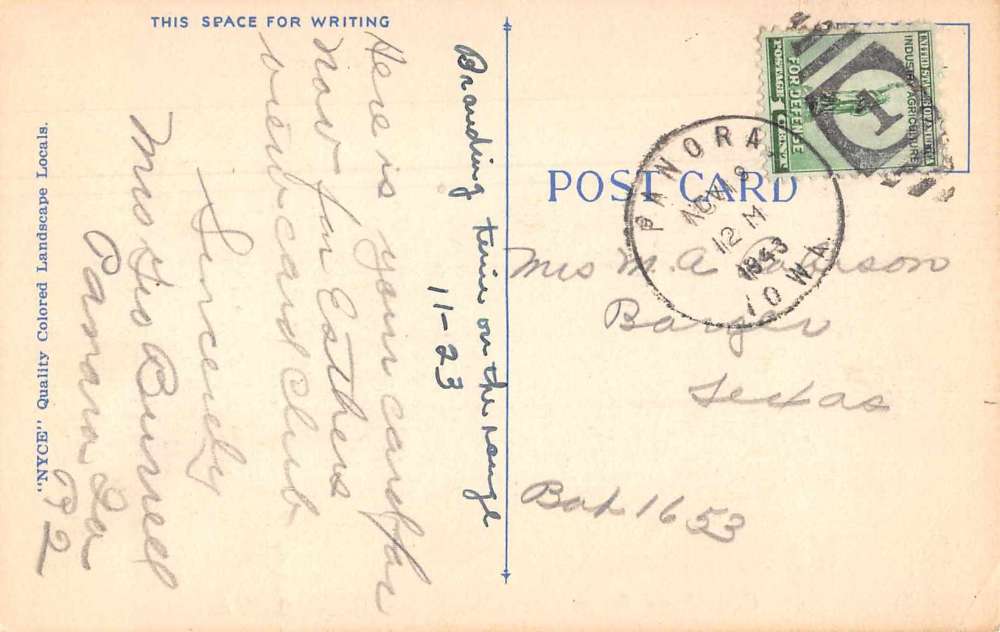 THIS SPACE FOR WRITING
Branding time on the range
11-23
Here is your card for
Nov for Esthers
viewcard club
Sincerely
Mrs Burnell
Panora Ia
R 2
"NYCE" Quality Colored Landscape Locals.
POST CARD
UNITED STATES OF AMERICA
INDUSTRY AGRICULTURE
FOR DEFENSE
POSTAGE 1 CENT
1
PANORA
NOV 18
12 M
1943
IOWA
Mrs M. A. Peterson
Borger
Texas
Box 1653